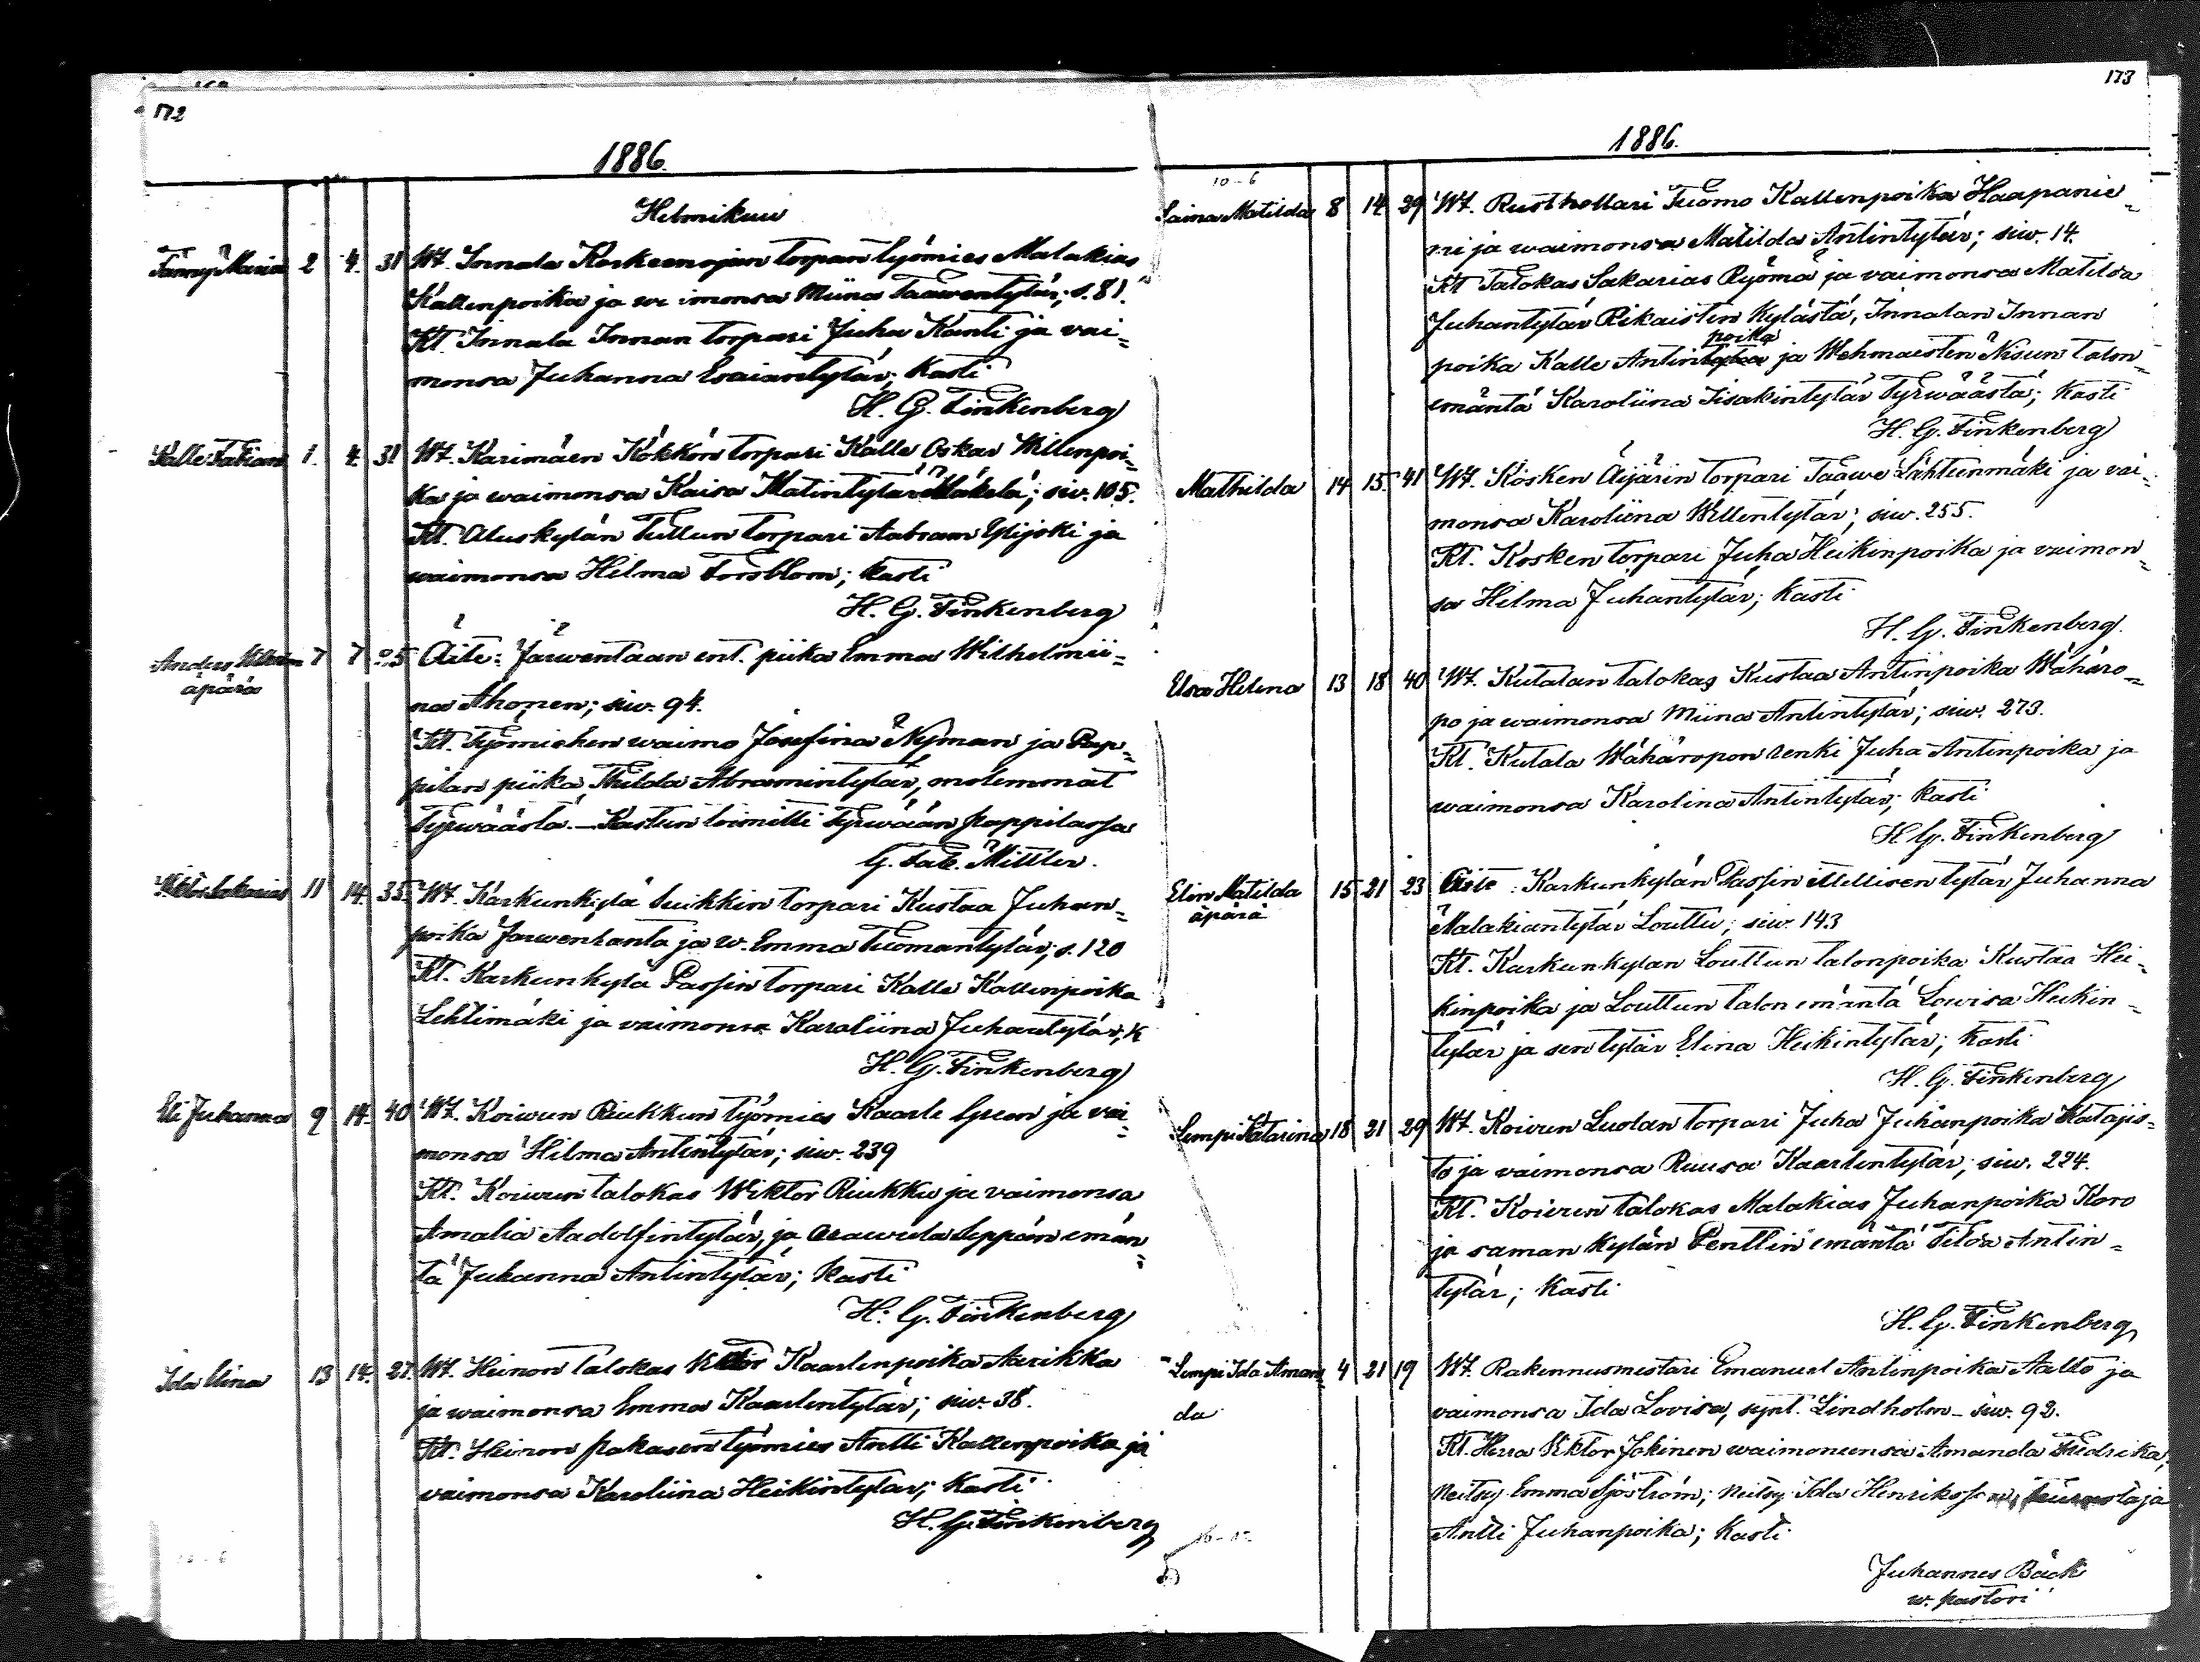 172
1886.
Helmikuu
Fanny Maria 2 4. 31 Wt. Innala Koskenojan torpan työmies Malakias
Kallenpoika ja waimonsa Miina Taawentytär; s. 81.
Kt. Innala Innan torpari Juha Kanti ja vai=
monsa Juhanna Esaiantytär; Kasti
H. G. Finkenberg
Kalle Fabian 1. 4. 31 Wt. Karimäen Kökkön torpari Kalle Oskar Willenpoi=
ka ja waimonsa Kaisa Matintytär Mäkelä; siw. 105.
Kt. Aluskylän Tullun torpari Aabram Ylijoki ja
waimonsa Hilma Forsblom; Kasti
H. G. Finkenberg
Anders 7 7 25 Äite: Järwentaan ent. piika Emma Wilhelmii=
äpärä
na Ahonen; siw. 94.
Kt. Työmiehen waimo Josefina Nyman ja Pap=
pilan piika Thilda Abramintytär, molemmat
Tyrwäästä. – Kasteen toimitti Tyrwään pappilassa
G. Fab. Mittler.
Wiktor Sakarias 11 14. 35. Wt. Karkunkylä Suikkin torpari Kustaa Juhan=
poika Jarwenranta ja w. Emma Tuomantytär; s. 120
Kt. Karkunkylä Passin torpari Kalle Kallenpoika
Lehtimäki ja vaimonsa Karoliina Juhantytär; K
H. G. Finkenberg
Eli Juhanna 9 14. 40 Wt. Koiwun Riukkun työmies Kaarle Green ja vai=
monsa Hilma Antintytär; siw. 239
Kt. Koiwun talokas Wiktor Riukku ja vaimonsa
Amalia Aadolfintytär, ja Seppän emän=
tä Juhanna Antintytär; Kasti
H. G. Finkenberg
Ida Elina 13 14. 27. Wt. Heinon talokas Viktor Kaarlenpoika Aarikka
ja waimonsa Emma Kaarlentytär; siw. 38.
Kt. Heinon Pakasen työmies Antti Kallenpoika ja
vaimonsa Karoliina Heikintytär; Kasti
H. G. Finkenberg
173
1886.
10-6
Saima Matilda 8 14 29 Wt. Rusthollari Tuomo Kallenpoika Haapanie=
mi ja waimonsa Matilda Antintytär; siw. 14.
Kt Talokas Sakarias Ryömä ja vaimonsa Matilda
Juhantytär Rikaisten Kylästä, Innalan Innan
poika
poika Kalle Antin ja Wehmaisten Nisun talon=
emäntä Karoliina Iisakintytär Tyrwäästä; Kasti
H. G. Finkenberg
Mathilda 14 15. 41 Wt. Kosken Äijärin torpari Taawe Lähteenmäki ja vai=
monsa Karoliina Willentytär; siw. 255.
Kt. Kosken torpari Juha Heikinpoika ja vaimon=
sa Hilma Juhantytär; Kasti
H. G. Finkenberg.
Elsa Helena 13 18 40 Wt. Kutalan talokas Kustaa Antinpoika Wähäro=
po ja waimonsa Miina Antintytär; siw. 273.
Kt. Kutala Wähäropon renki Juha Antinpoika ja
waimonsa Karolina Antintytär; Kasti
H. G. Finkenberg
Elin Matilda 15 21 23 Äite: Karkunkylän Passin itsellisen tytär Juhanna
äpärä
Malakiantytär Louttu; siw. 143
Kt. Karkunkylän Louttun talonpoika Kustaa Hei=
kinpoika ja Louttun talon emäntä Lowisa Heikin=
tytär ja sen tytär Elina Heikintytär; Kasti
H. G. Finkenberg
Lempi Katarina 18 21 29 Wt. Koiwun Luolan torpari Juha Juhanpoika Katajis=
to ja vaimonsa Ruusa Kaarlentytär; siw. 224.
Kt. Koiwun talokas Malakias Juhanpoika Koro
ja saman kylän Penttin emäntä Tilda Antin=
tytär; Kasti
H. G. Finkenberg
Lempi Ida Aman= 4 21 19 Wt. Rakennusmestari Emanuel Antinpoika Aalto ja
da
vaimonsa Ida Lovisa, synt. Lindholm – siw. 92.
Kt. Herra Viktor Jokinen waimoneensa Amanda Fredrika,
Neitsy Emma Sjöström; neitsy Ida Henriksson,
Antti Juhanpoika; Kasti
Juhannes Bäck
w. pastori